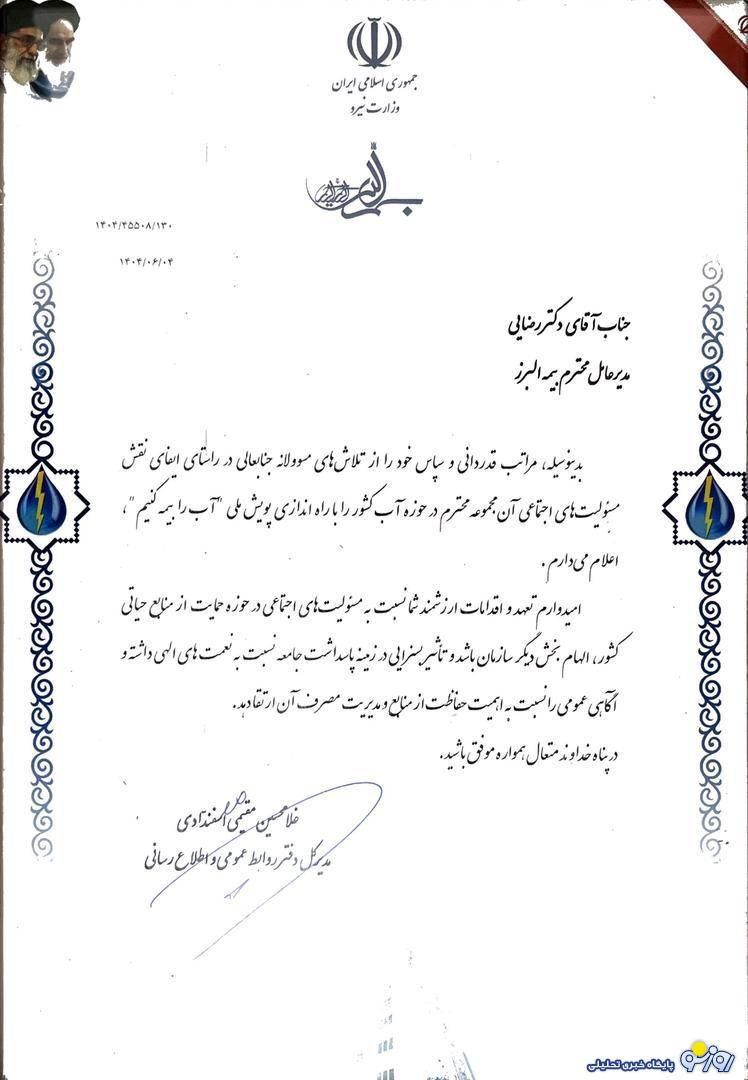 جمهوری اسلامی ایران
وزارت نیرو
بسم الله الرحمن الرحیم
۱۴۰۴/۴۵۵۰۸/۱۳۰
۱۴۰۴/۰۶/۰۴
جناب آقای دکتر رضایی
مدیرعامل محترم بیمه البرز
بدینوسیله، مراتب قدردانی و سپاس خود را از تلاش‌های مسوولانه جنابعالی در راستای ایفای نقش
مسئولیت‌های اجتماعی آن مجموعه محترم در حوزه آب کشور را با راه اندازی پویش ملی "آب را بیمه کنیم"،
اعلام می‌دارم.
امیدوارم تعهد و اقدامات ارزشمند شما نسبت به مسئولیت‌های اجتماعی در حوزه حمایت از منابع حیاتی
کشور، الهام بخش دیگر سازمان باشد و تأثیر بسزایی در زمینه پاسداشت جامعه نسبت به نعمت های الهی داشته و
آگاهی عمومی را نسبت به اهمیت حفاظت از منابع و مدیریت مصرف آن ارتقا دهد.
در پناه خداوند متعال همواره موفق باشید.
غلامحسین مقیمی
مدیرکل دفتر روابط عمومی و اطلاع رسانی
روزنو
پایگاه خبری تحلیلی